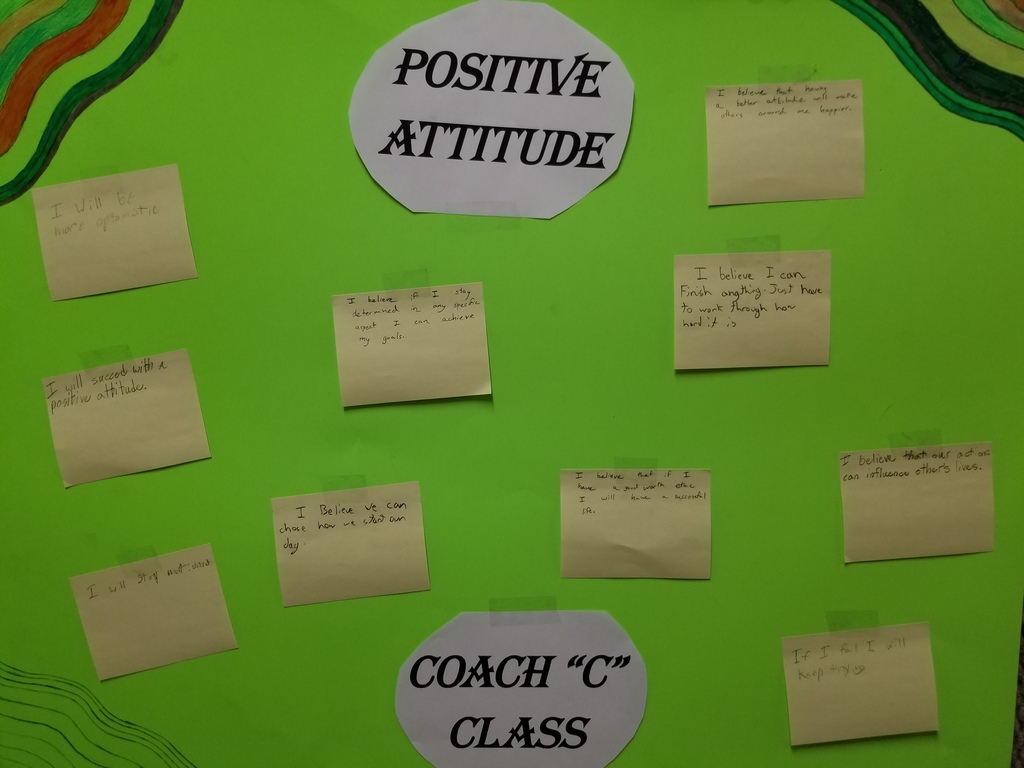 POSITIVE
ATTITUDE
I believe that having
a better attitude will make
others around me happier.
I Will BE
more optomistic
I believe if I stay
determined in any specific
aspect I can achieve
my goals.
I believe I can
Finish anything. Just have
to work through how
hard it is
I will succeed with a
positive attitude.
I Believe we can
chose how we start our
day.
I believe that if I
have a good worth ethic
I will have a successful
life.
I believe that our actions
can influence other's lives.
I will stay
If I fail I will
keep trying
COACH "C"
CLASS